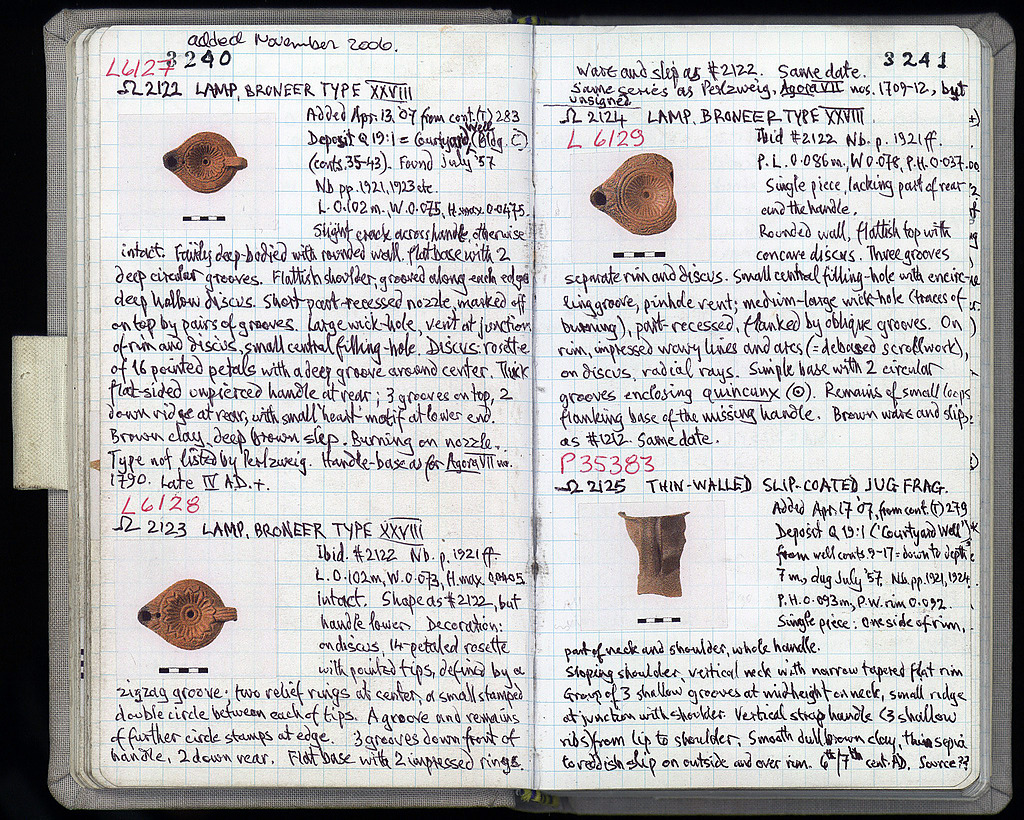 added November 2006.
3240
L6127
Ω 2122 LAMP, BRONEER TYPE XXVIII
Added Apr. 13, '07 from cont. (T) 283
Deposit Q 19:1 = Courtyard Well (Bldg. C)
(conts. 35-43). Found July '57
Nb pp. 1921, 1923 etc.
L. 0.102 m., W. 0.075, H. max. 0.0475.
Slight crack across handle, otherwise
intact. Fairly deep-bodied with rounded wall, flat base with 2
deep circular grooves. Flattish shoulder, grooved along each edge
deep hollow discus. Short part-recessed nozzle, marked off
on top by pairs of grooves. Large wick-hole, vent at junction
of rim and discus, small central filling-hole. Discus: rosette
of 16 pointed petals with a deep groove around center. Thick
flat-sided unpierced handle at rear; 3 grooves on top, 2
down ridge at rear, with small 'heart' motif at lower end.
Brown clay, deep brown slip. Burning on nozzle.
Type not listed by Perlzweig. Handle-base as for Agora VII no.
1790. Late IV A.D. +.
L6128
Ω 2123 LAMP, BRONEER TYPE XXVIII
Ibid. #2122 Nb. p. 1921 ff.
L. 0.102 m, W. 0.073, H. max
Intact. Shape as #2122, but
handle lower. Decoration:
on discus, 14-petaled rosette
with pointed tips, defined by a
zigzag groove; two relief rings at center, a small stamped
double circle between each of tips. A groove and remains
of further circle stamps at edge. 3 grooves down front of
handle, 2 down rear. Flat base with 2 impressed rings.
3241
Ware and slip as #2122. Same date.
Same series as Perlzweig, Agora VII nos. 1709-12, but
unsigned
Ω 2124 LAMP, BRONEER TYPE XXVIII.
L 6129
Ibid #2122 Nb. p. 1921 ff.
P. L. 0.086 m, W 0.078, P.H. 0.037.
Single piece, lacking part of rear
and the handle.
Rounded wall, flattish top with
concave discus. Three grooves
separate rim and discus. Small central filling-hole with encirc-
ling groove, pinhole vent; medium-large wick-hole (traces of
burning), part-recessed, flanked by oblique grooves. On
rim, impressed wavy lines and arcs (= debased scrollwork),
on discus, radial rays. Simple base with 2 circular
grooves enclosing quincunx (⊙). Remains of small loops
flanking base of the missing handle. Brown ware and slip,
as #1212. Same date.
P 35383
Ω 2125 THIN-WALLED SLIP-COATED JUG FRAG.
Added Apr. 17 '07, from cont. (T) 279
Deposit Q 19:1 ("Courtyard Well")
from well conts 9-17 = down to depth
7 m, dug July '57. Nb. pp. 1921, 1924.
P.H. 0.093 m, P.W. rim 0.092.
Single piece: one side of rim,
part of neck and shoulder, whole handle.
Sloping shoulder, vertical neck with narrow tapered flat rim
Group of 3 shallow grooves at midheight on neck, small ridge
at junction with shoulder. Vertical strap handle (3 shallow
ribs) from lip to shoulder. Smooth dull brown clay, thin sepia
to reddish slip on outside and over rim. 6th/7th cent. A.D. Source??